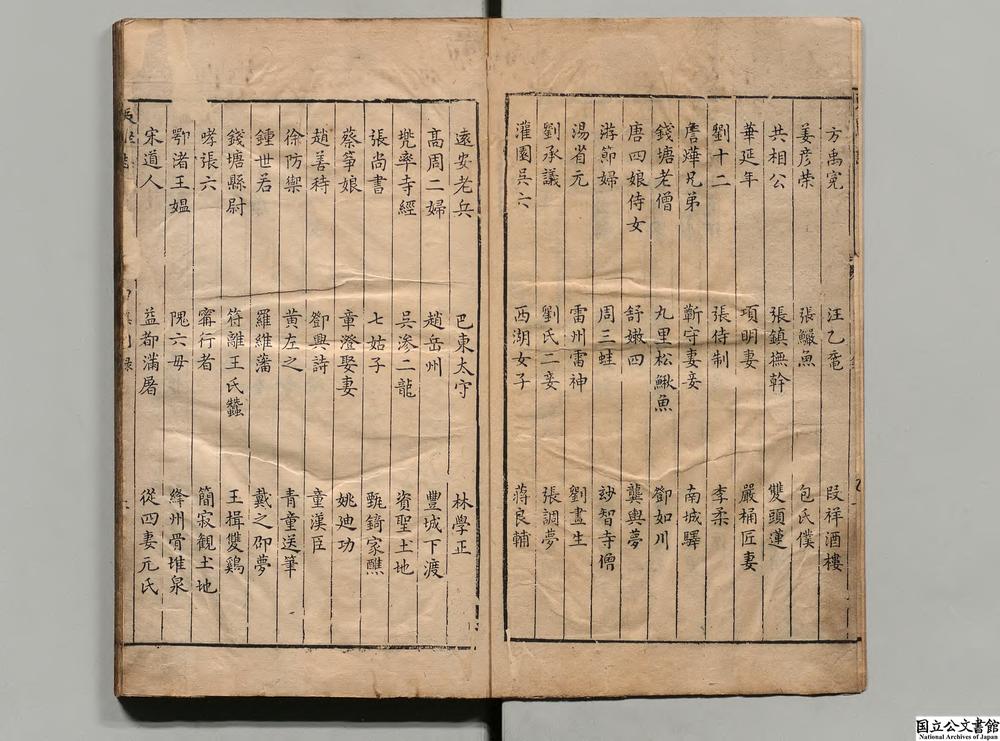 方禹寃 汪乙黿 段祥酒樓
姜彦榮 張鱞魚 包氏僕
共相公 張鎮撫幹 雙頭蓮
華延年 項明妻 嚴桶匠妻
劉十二 張侍制 李柔
詹煒兄弟 靳守妻妾 南城驛
錢塘老僧 九里松鰍魚 鄧如川
唐四娘侍女 舒嫩四 龔輿夢
游節婦 周三蛙 玅智寺僧
湯省元 雷州雷神 劉畫生
劉承議 劉氏二妾 張調夢
灌園吳六 西湖女子 蔣良輔
遠安老兵 巴東太守 林學正
高周二婦 趙岳州 豐城下渡
兠率寺經 吳滲二龍 資聖土地
張尚書 七姑子 甄錡家醮
蔡箏娘 童澄娶妻 姚迪功
趙善待 鄧興詩 童漢臣
徐防禦 黄左之 青童送筆
鍾世若 羅維藩 戴之邵夢
錢塘縣尉 符離王氏蠶 王揖雙鷄
哮張六 甯行者 簡寂観土地
鄂渚王媼 隗六母 絳州骨堆泉
宋道人 益都滿屠 從四妻元氏
国立公文書館
National Archives of Japan